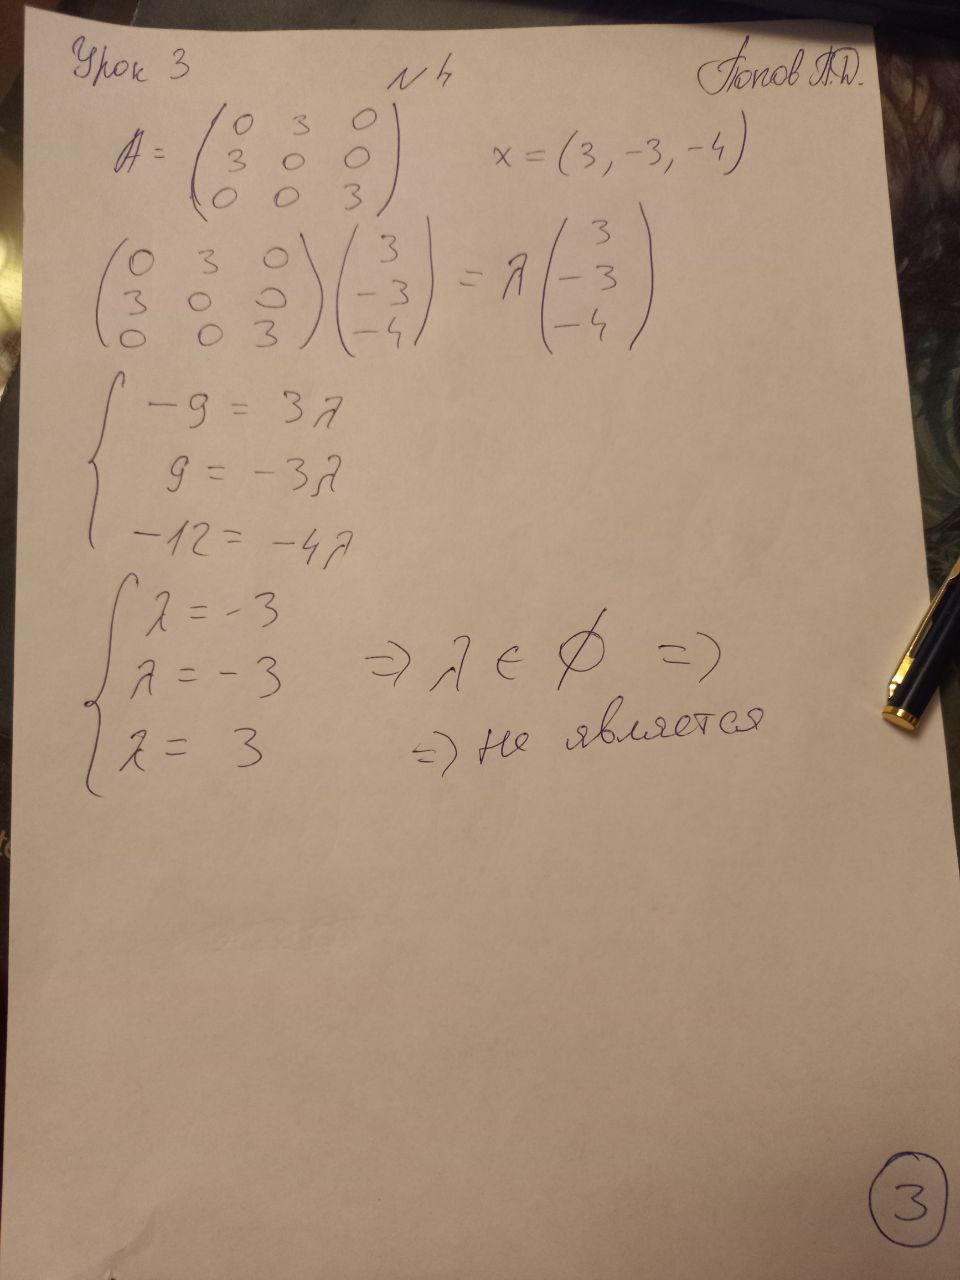 Урок 3 № 4 Попов А.Д.
A = (0 3 0
3 0 0
0 0 3) x = (3, -3, -4)
(0 3 0
3 0 0
0 0 3) (3
-3
-4) = λ (3
-3
-4)
{ -9 = 3λ
9 = -3λ
-12 = -4λ
{ λ = -3
λ = -3 => λ ∈ ∅ =>
λ = 3 => не является
3